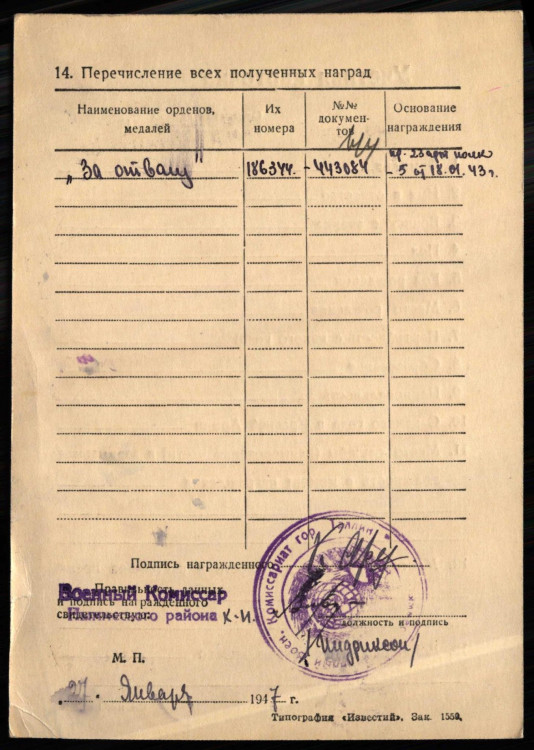 14. Перечисление всех полученных наград
Наименование орденов, медалей
Их номера
№№ докумен-тов
Основание награждения
„За отвагу" 186344. - 443084
- 5 от 18.01.43 г.
Подпись награжденного
Правильность данных
и подпись награжденного
свидетельствую:
Военный Комиссар
района К-н.
Воен. Комиссариат гор. Таллин
должность и подпись
М. П.
27. Января 1947 г.
Типография «Известий», Зак. 1559.